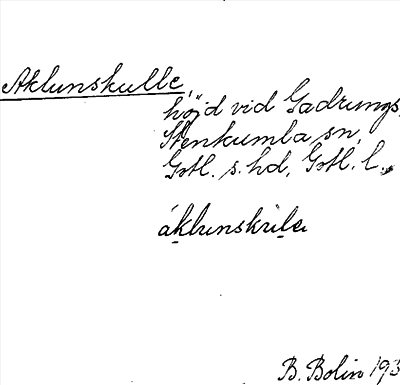 Aklunskulle,
höjd vid Gadrungs,
Stenkumla sn,
Gotl. s. hd, Gotl. l.
áklunskųla
B. Bolin 193